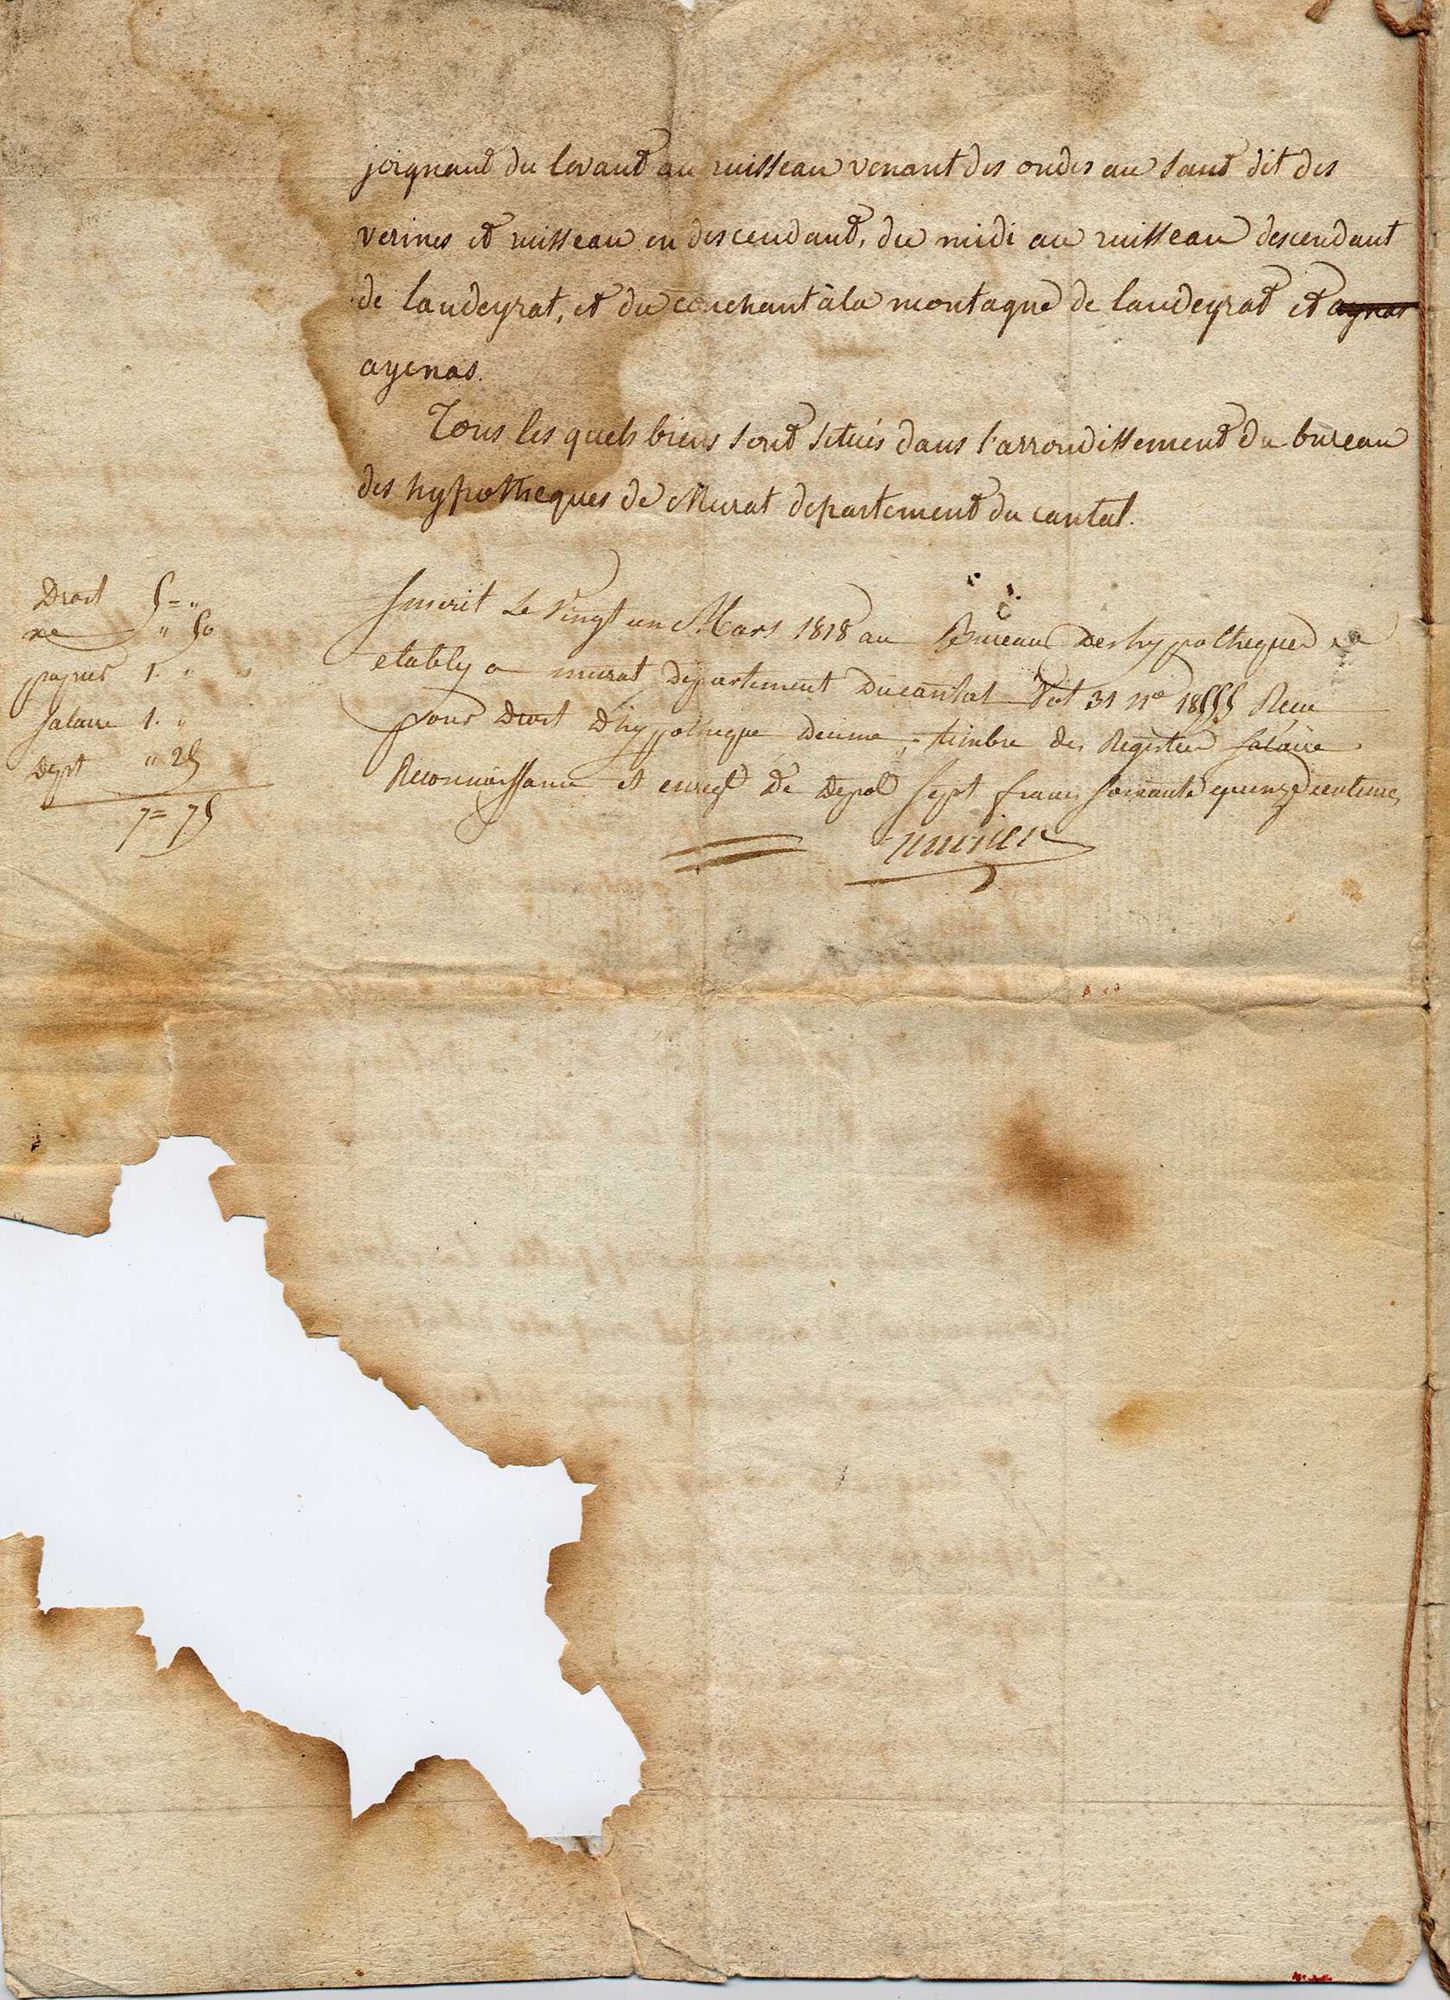 joignant du levant au ruisseau venant des ondes au saut dit des
verines et ruisseau en descendant, du midi au ruisseau descendant
de landeyrat, et du couchant à la montagne de landeyrat et
ayenas.
Tous les quels biens sont situés dans l'arrondissement du bureau
des hypotheques de Murat departement du cantal.
Droit 5 = "
" 50
papier 1. "
Salaire 1. "
Dept " 25
7 = 75
Inscrit Le Vingt un Mars 1818 au Bureau Des hypotheques
etably a murat departement Ducantal Vol 31 n° 18555 Recu
pour Droit D'hypotheque Decime, timbre des Registres Salaire
Reconnaissance et enregt De Depot Sept francs soixante quinze centimes